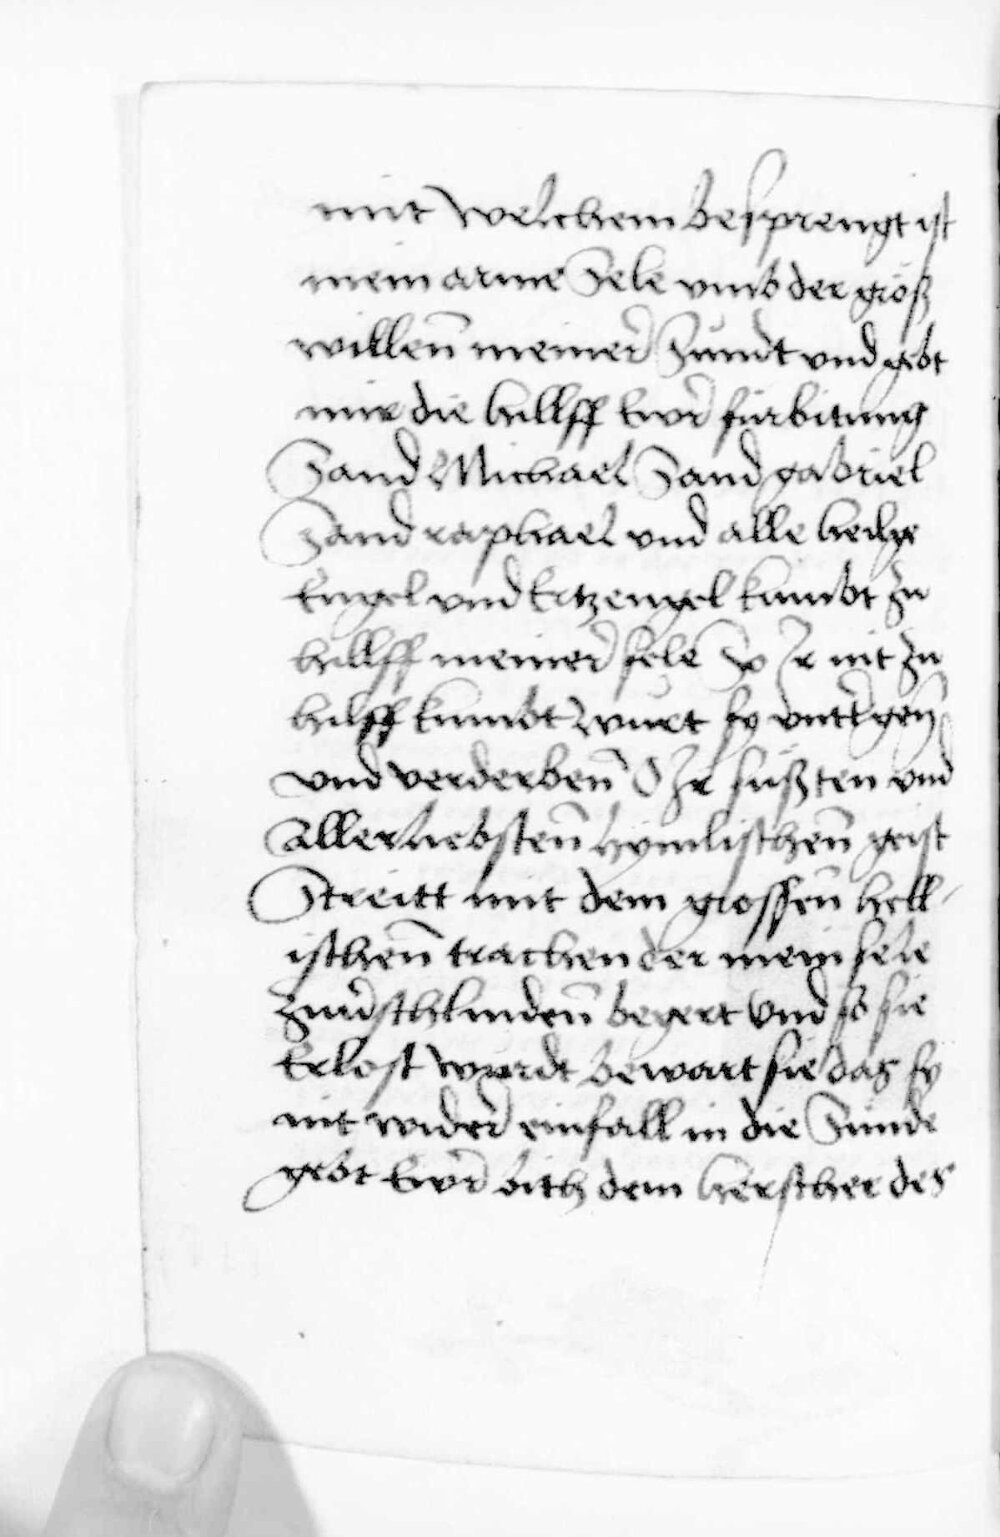 mit welchem besprengt ist
mein arme Sele vmb der groß
willen̄ meiner Sundt vnd gebt
mir die hillff Ewr̄ furbitung
Sand Michael Sand gabriel
Sand raphael vnd alle heilge
Engel vnd Ertzengel kumbt zu
hillff meiner sele So Ir nit zu
hilff kumbt wurt sy vntergen̄
vnd verderben̄ O Ir sußten vnd
allerliebsten̄ hymlischen̄ geist
Streitt mit dem grossen̄ hell-
ischen̄ trachen der mein sele
zuuerschlinden̄ begert Vnd so sie
Erlost wurdt bewart sie das sy
nit wider einfall in die Sunde
gebt Ewr̄ bith dem herscher des